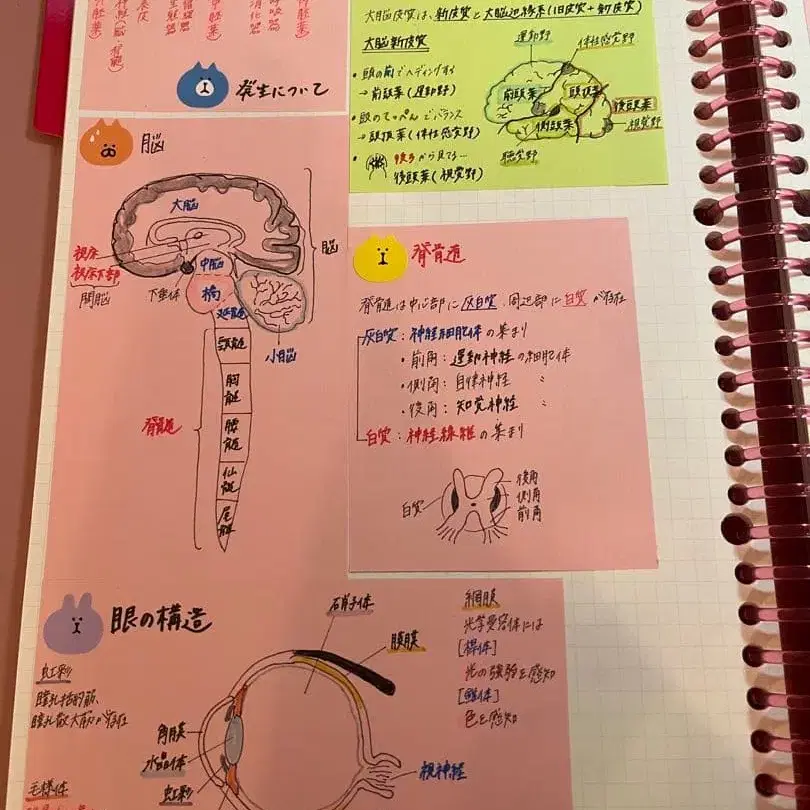 発生について
大脳皮質は、新皮質と大脳辺縁系(旧皮質+古皮質)
大脳新皮質
運動野
体性感覚野
・頭の前でヘディングする
→前頭葉(運動野)
・頭のてっぺんでバランス
→頭頂葉(体性感覚野)
・後ろから見てる…
後頭葉(視覚野)
前頭葉
頭頂葉
側頭葉
後頭葉
視覚野
聴覚野
脳
大脳
視床
視床下部
間脳
中脳
下垂体
橋
延髄
小脳
脳
頸髄
胸髄
腰髄
仙髄
尾髄
脊髄
脊髄
脊髄は中心部に灰白質、周辺部に白質が存在
灰白質:神経細胞体の集まり
・前角:運動神経の細胞体
・側角:自律神経 〃
・後角:知覚神経 〃
白質:神経線維の集まり
白質
後角
側角
前角
眼の構造
虹彩
瞳孔括約筋、
瞳孔散大筋が存在
毛様体
硝子体
角膜
水晶体
虹彩
視神経
網膜
光学受容体には
[桿体]
光の強弱を感知
[錐体]
色を感知